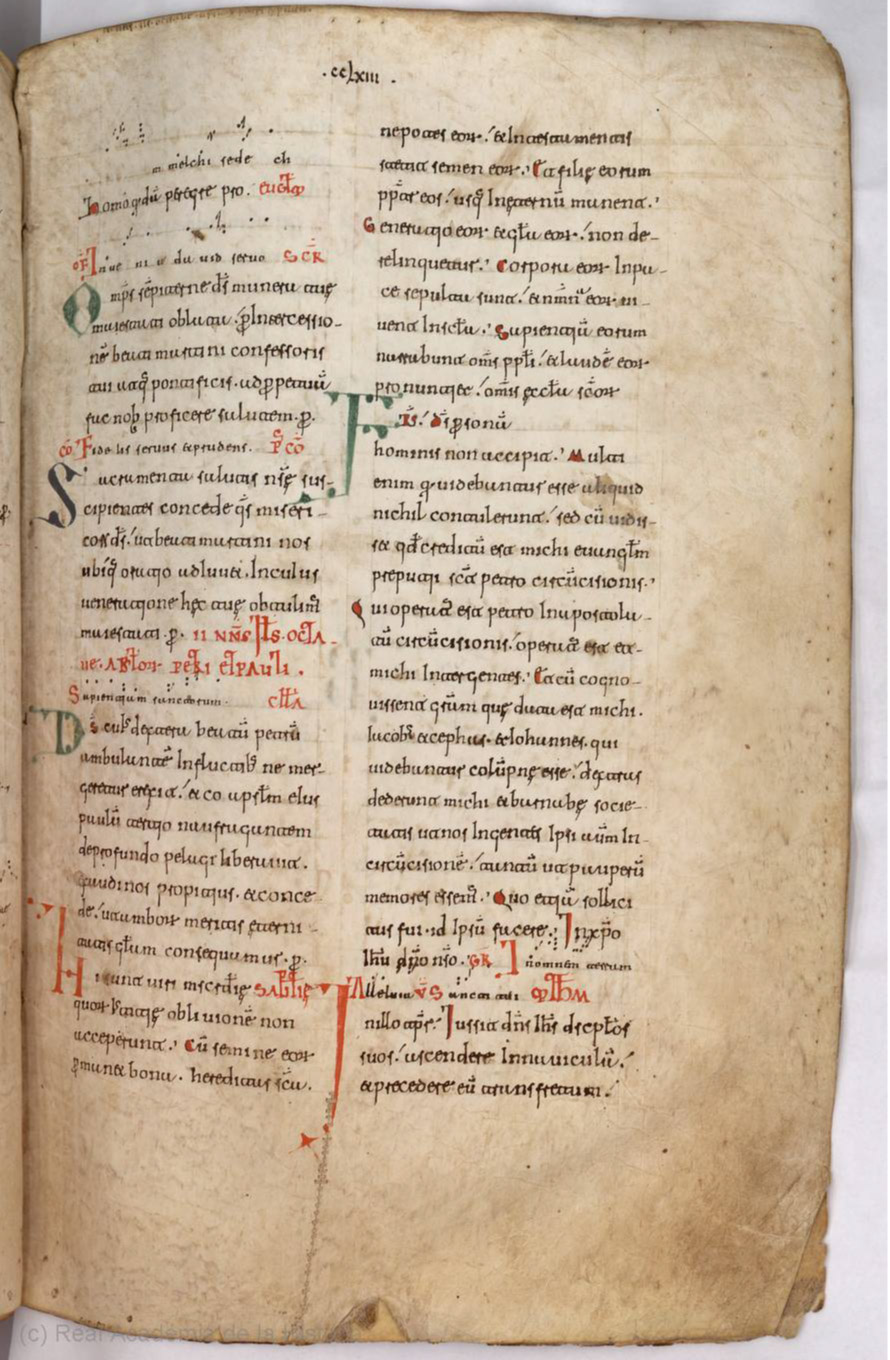 .cclxiii.
m melchi sede ch
homo qdā peregre pro. euḡlm
of Inue ni dauid seruo SCR̄
Omp̄s sēpiterne ds̄ munera tuę
maiestati oblata. p̄ Intercessio-
nē beati martini confessoris
tui atq̄ pontificis. ad ppetuū
fac nob̄ proficere salutem. p̄.
cō Fidelis seruus & prudens. P̄ cō
Sacramenta salutis nr̄ę sus-
cipientes concede qs̄ miseri-
cors ds̄/ ut beati martini nos
ubiq̄ oratio adiuuet. In cuius
ueneratione hęc tuę obtulim̄
maiestati. p̄. II NN̄S IL̄S. OCTA-
ue. APL̄or PETRI ET PAULI.
Sapientiam sanctorum. cl̄lā
Ds̄ cui' dextera beatū petrū
ambulantē In fluctib' ne mer-
geretur erexit./ & co apl̄m eius
paulū tertio naufragantem
de profundo pelagi liberauit.
exaudi nos propitius. & conce
de./ ut amborum meritis eterni-
tatis gl̄am consequamur. p̄.
Hii sunt uiri misc̄dię SAPĪĘ
quor pietatis obliuionē non
acceperunt.' Cū semine eor
pmanet bona. hereditas sc̄a.
nepotes eor./ & In testamentis
stetit semen eor.' Et filię eorum
ppt̄ eos./ usq̄ In ęternū manent.'
Generatio eor & gl̄a eor./ non de-
relinquetur.' Corpora eor In pa-
ce sepulta sunt./ & nom̄ eor ui-
uent In sc̄la.' Sapientiā eorum
narrabunt om̄s ppl̄i./ & laudē eor
pronuntiet./ om̄is ęccl̄a sc̄or
FR̄S./ ds̄ personā
hominis non accipit.' Mihi
enim qui uidebantur esse aliquid
nichil contulerunt./ sed cū uidis-
set qd̄ creditū est michi euangl̄m
preputii sc̄a petro circūcisionis.'
Qui operat' est petro In apostola-
tū circūcisionis./ operat' est et-
michi Inter gentes.' Et cū cogno-
uissent grām quę data est michi.
Iacob' & cephas. & Iohannes. qui
uidebantur colūpnę esse./ dextras
dederunt michi & barnabę socie-
tatis ut nos In gentes Ipsi aūm In-
circūcisionē./ tantū ut pauperū
memores essem̄.' Quo etiā sollici
tus fui. id Ipsū facere.' In xp̄o
Ih̄u dn̄o nr̄o. GR̄. In omnem terram
Alleluia V̄S
In illo tp̄r./ Iussit dn̄s Ih̄s discpl̄os
suos./ ascendere In nauiculā./
& precedere eū trans fretum./